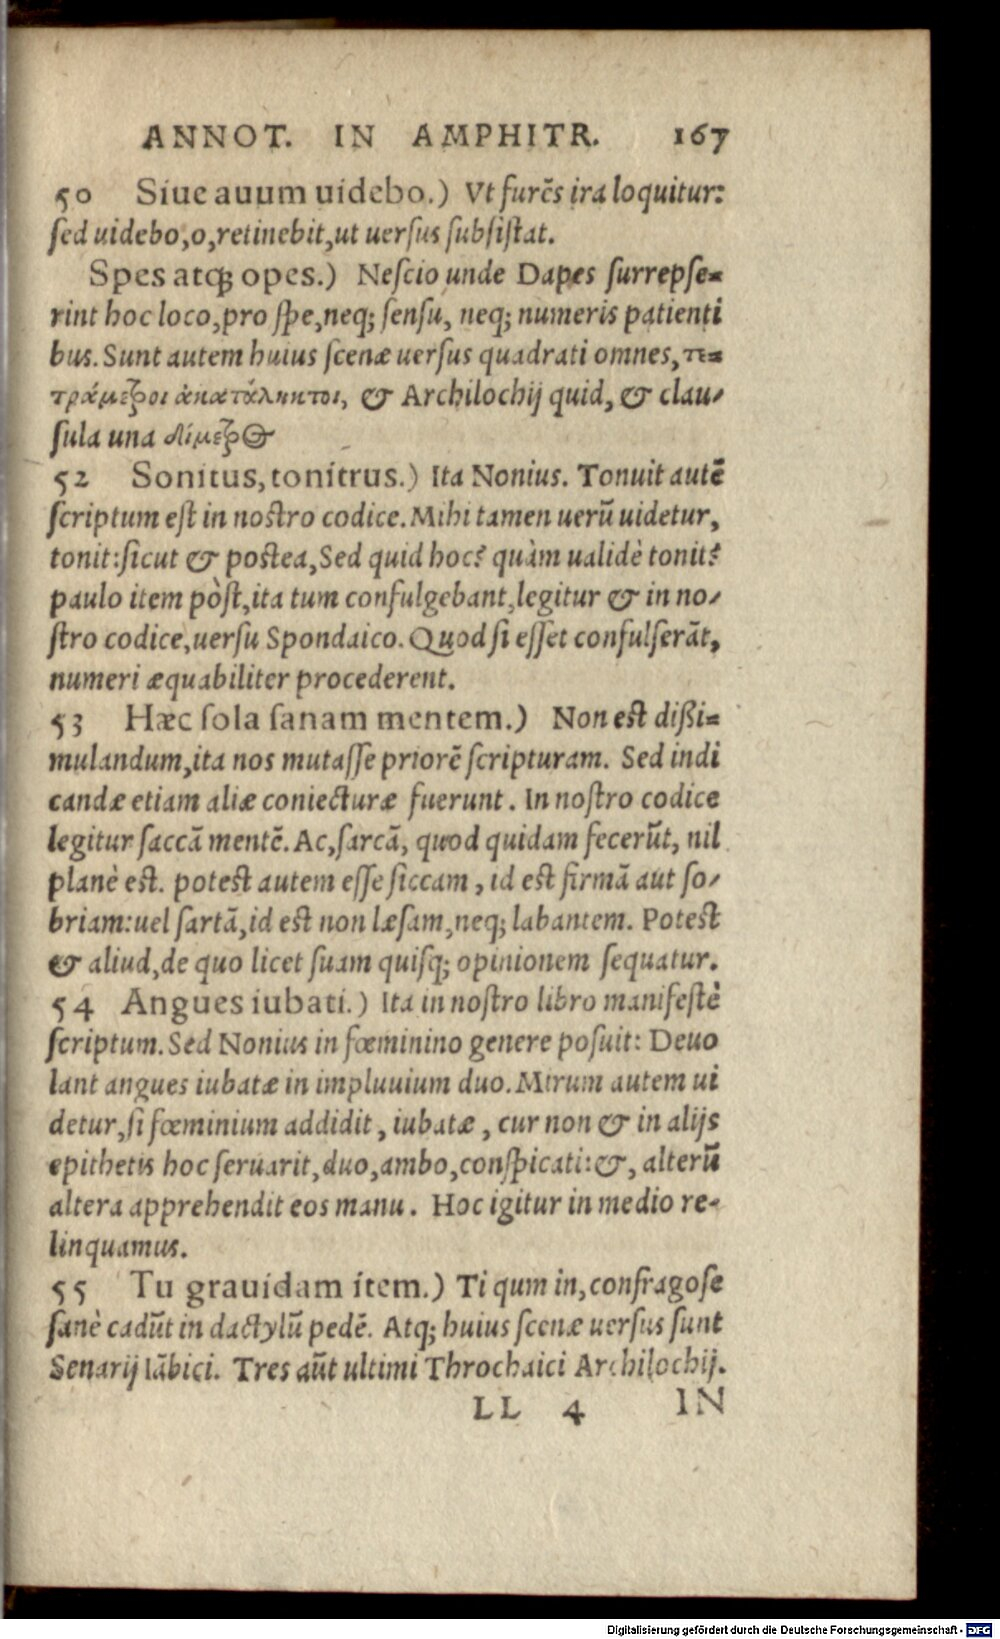 ANNOT. IN AMPHITR. 167
50 Siue auum uidebo.) Vt furẽs ira loquitur:
ſed uidebo,o,retinebit,ut uerſus ſubſiſtat.
Spes atq; opes.) Neſcio unde Dapes ſurrepſe=
rint hoc loco,pro ſpe,neq; ſenſu, neq; numeris patienti
bus. Sunt autem huius ſcenæ uerſus quadrati omnes, τε=
τράμετροι ἀκατάληκτοι, & Archilochij quid, & clau/
ſula una δίμετρος
52 Sonitus, tonitrus.) Ita Nonius. Tonuit autẽ
ſcriptum eſt in noſtro codice. Mihi tamen uerũ uidetur,
tonit: ſicut & poſtea, Sed quid hoc? quàm ualidè tonit?
paulo item pòſt, ita tum confulgebant, legitur & in no/
ſtro codice, uerſu Spondaico. Quod ſi eſſet confulſerãt,
numeri æquabiliter procederent.
53 Hæc ſola ſanam mentem.) Non eſt dißi=
mulandum, ita nos mutaſſe priorẽ ſcripturam. Sed indi
candæ etiam aliæ coniecturæ fuerunt. In noſtro codice
legitur ſaccã mentẽ. Ac, ſarcã, quod quidam fecerũt, nil
planè eſt. poteſt autem eſſe ſiccam, id eſt firmã aut ſo/
briam: uel ſartã, id eſt non læſam, neq; labantem. Poteſt
& aliud, de quo licet ſuam quiſq; opinionem ſequatur.
54 Angues iubati.) Ita in noſtro libro manifeſtè
ſcriptum. Sed Nonius in fœminino genere poſuit: Deuo
lant angues iubatæ in impluuium duo. Mirum autem ui
detur, ſi fœminium addidit, iubatæ, cur non & in alijs
epithetis hoc ſeruarit, duo, ambo, conſpicati: &, alterũ
altera apprehendit eos manu. Hoc igitur in medio re-
linquamus.
55 Tu grauidam item.) Ti qum in, confragoſe
ſanè cadũt in dactylũ pedẽ. Atq; huius ſcenæ uerſus ſunt
Senarij Iãbici. Tres aũt ultimi Throchaici Archilochij.
LL 4 IN
Digitalisierung gefördert durch die Deutsche Forschungsgemeinschaft - DFG